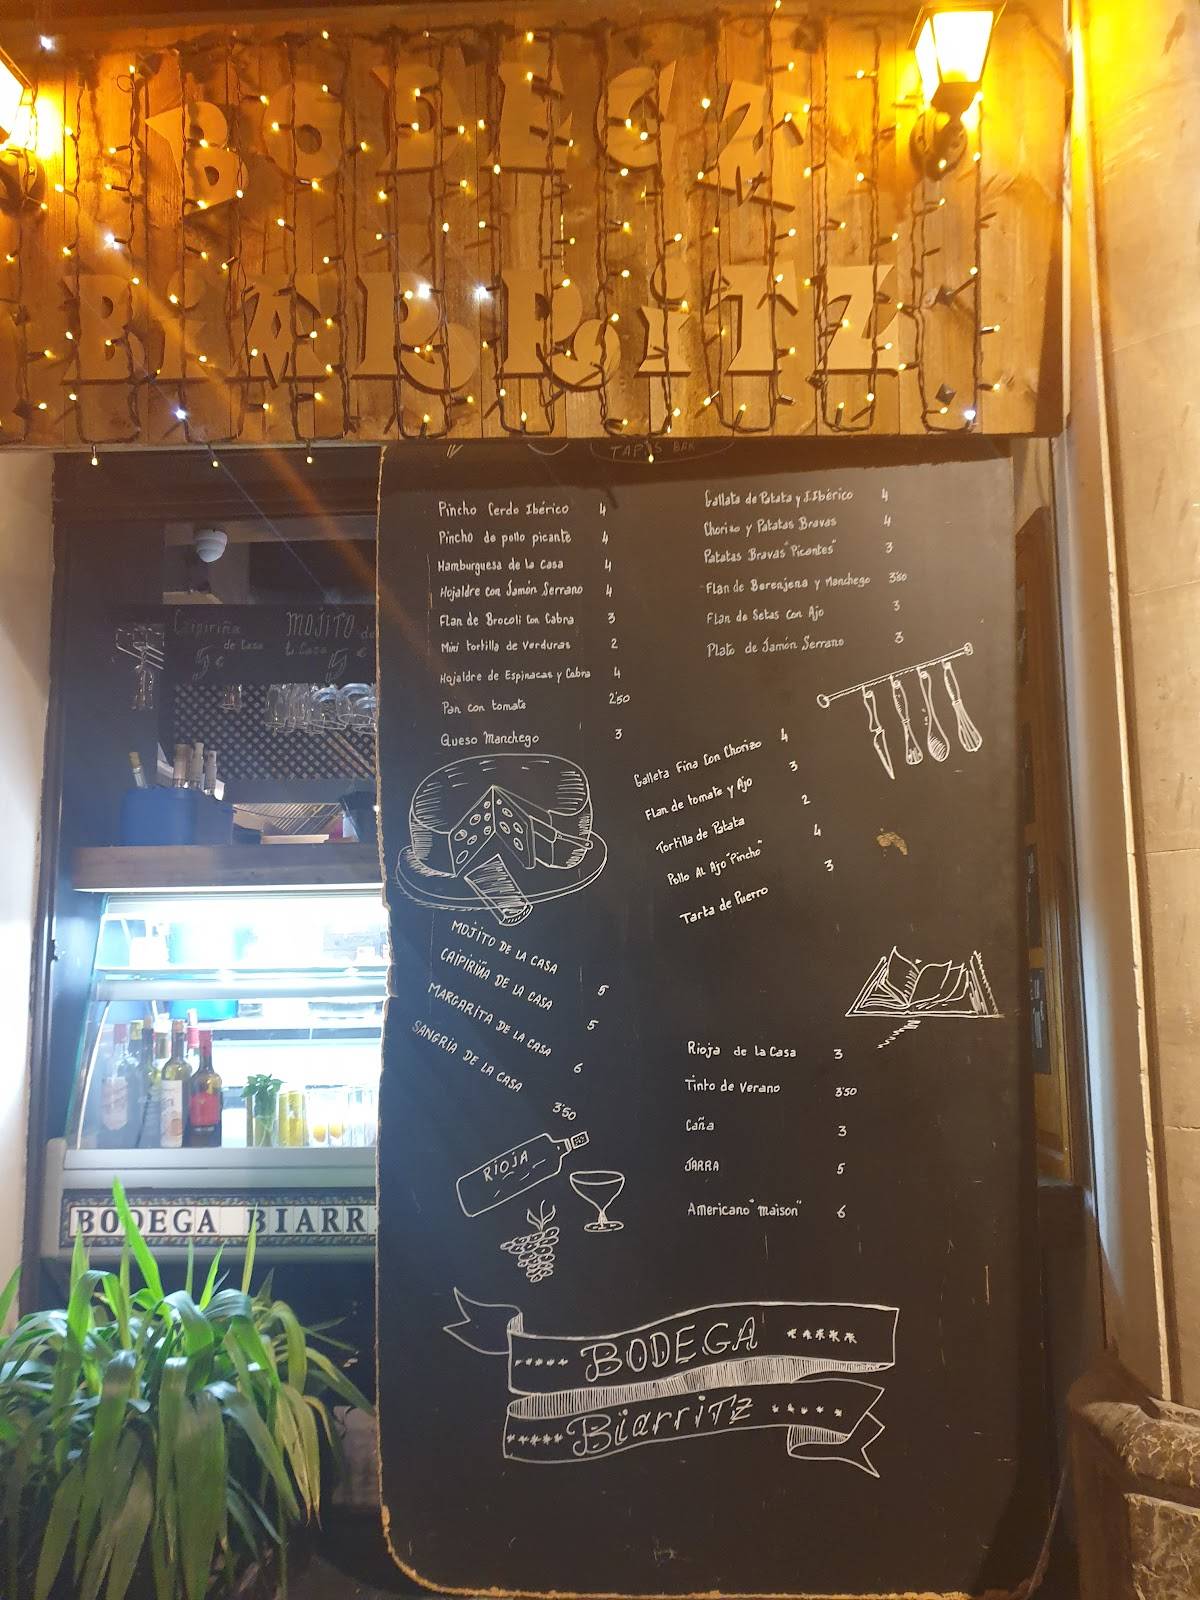 BODEGA
BIARRITZ
TAPAS BAR
Pincho Cerdo Ibérico 4
Pincho de pollo picante 4
Hamburguesa de la Casa 4
Hojaldre con Jamón Serrano 4
Flan de Brocoli Con Cabra 3
Mini tortilla de Verduras 2
Hojaldre de Espinacas y Cabra 4
Pan con tomate 2'50
Queso Manchego 3
Gallata de Patata y J.Ibérico 4
Chorizo y Patatas Bravas 4
Patatas Bravas "Picantes" 3
Flan de Berenjena y Manchego 3'50
Flan de Setas Con Ajo 3
Plato de Jamón Serrano 3
Galleta Fina Con Chorizo 4
Flan de tomate y Ajo 3
Tortilla de Patata 2
Pollo Al Ajo "Pincho" 4
Tarta de Puerro 3
MOJITO DE LA CASA 5
CAIPIRIÑA DE LA CASA 5
MARGARITA DE LA CASA 6
SANGRIA DE LA CASA 3'50
Rioja de La Casa 3
Tinto de Verano 3'50
Caña 3
JARRA 5
Americano "maison" 6
RIOJA
BODEGA
BiarriTZ
Caipiriña
de Casa
5 €
MOJITO de
la Casa
5 €
BODEGA BIARR